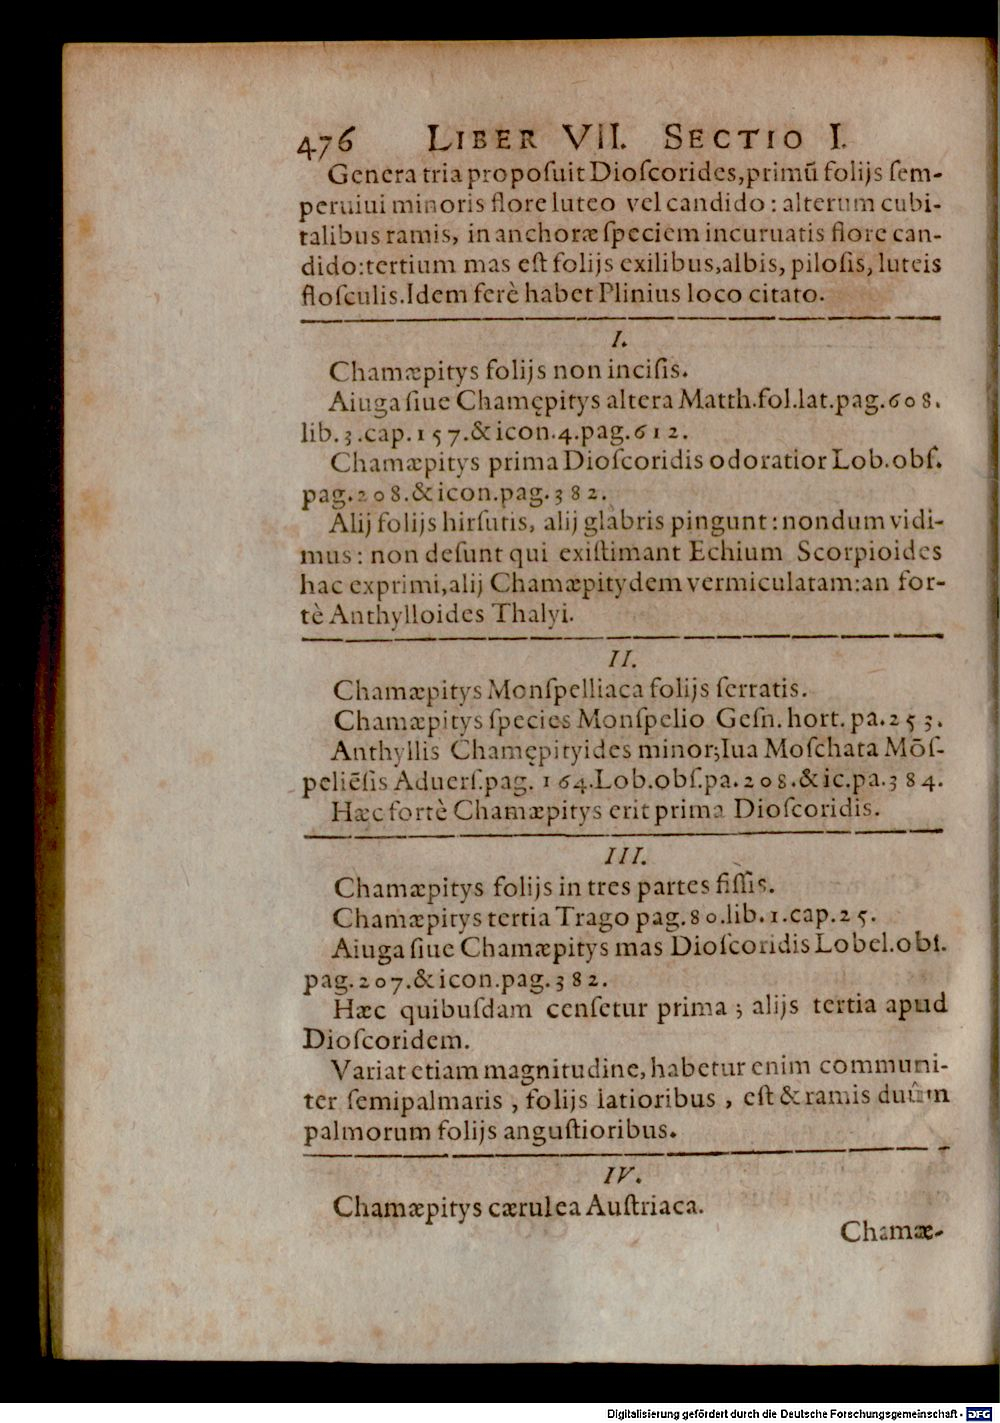 476 LIBER VII. SECTIO I.
Genera tria proposuit Dioſcorides,primū folijs ſem-
peruiui minoris flore luteo vel candido : alterum cubi-
talibus ramis, in anchoræ ſpeciem incuruatis flore can-
dido:tertium mas eſt folijs exilibus,albis, piloſis, luteis
floſculis.Idem ferè habet Plinius loco citato.
I.
Chamæpitys folijs non inciſis.
Aiuga ſiue Chamępitys altera Matth.fol.lat.pag.608.
lib.3.cap.157.&icon.4.pag.612.
Chamæpitys prima Dioſcoridis odoratior Lob.obſ.
pag.208.&icon.pag.382.
Alij folijs hirſutis, alij glabris pingunt : nondum vidi-
mus : non deſunt qui exiſtimant Echium Scorpioides
hac exprimi,alij Chamæpitydem vermiculatam:an for-
tè Anthylloides Thalyi.
II.
Chamæpitys Monſpelliaca folijs ſerratis.
Chamæpitys ſpecies Monſpelio Geſn. hort. pa.253.
Anthyllis Chamępityides minor;Iua Moſchata Mōſ-
peliēſis Aduerſ.pag. 164.Lob.obſ.pa.208.&ic.pa.384.
Hæc fortè Chamæpitys erit prima Dioſcoridis.
III.
Chamæpitys folijs in tres partes fiſſis.
Chamæpitys tertia Trago pag.80.lib.1.cap.25.
Aiuga ſiue Chamæpitys mas Dioſcoridis Lobel.obſ.
pag.207.&icon.pag.382.
Hæc quibuſdam cenſetur prima ; alijs tertia apud
Dioſcoridem.
Variat etiam magnitudine, habetur enim communi-
ter ſemipalmaris , folijs latioribus , eſt & ramis duûm
palmorum folijs anguſtioribus.
IV.
Chamæpitys cærulea Auſtriaca.
Chamæ-
Digitalisierung gefördert durch die Deutsche Forschungsgemeinschaft - DFG